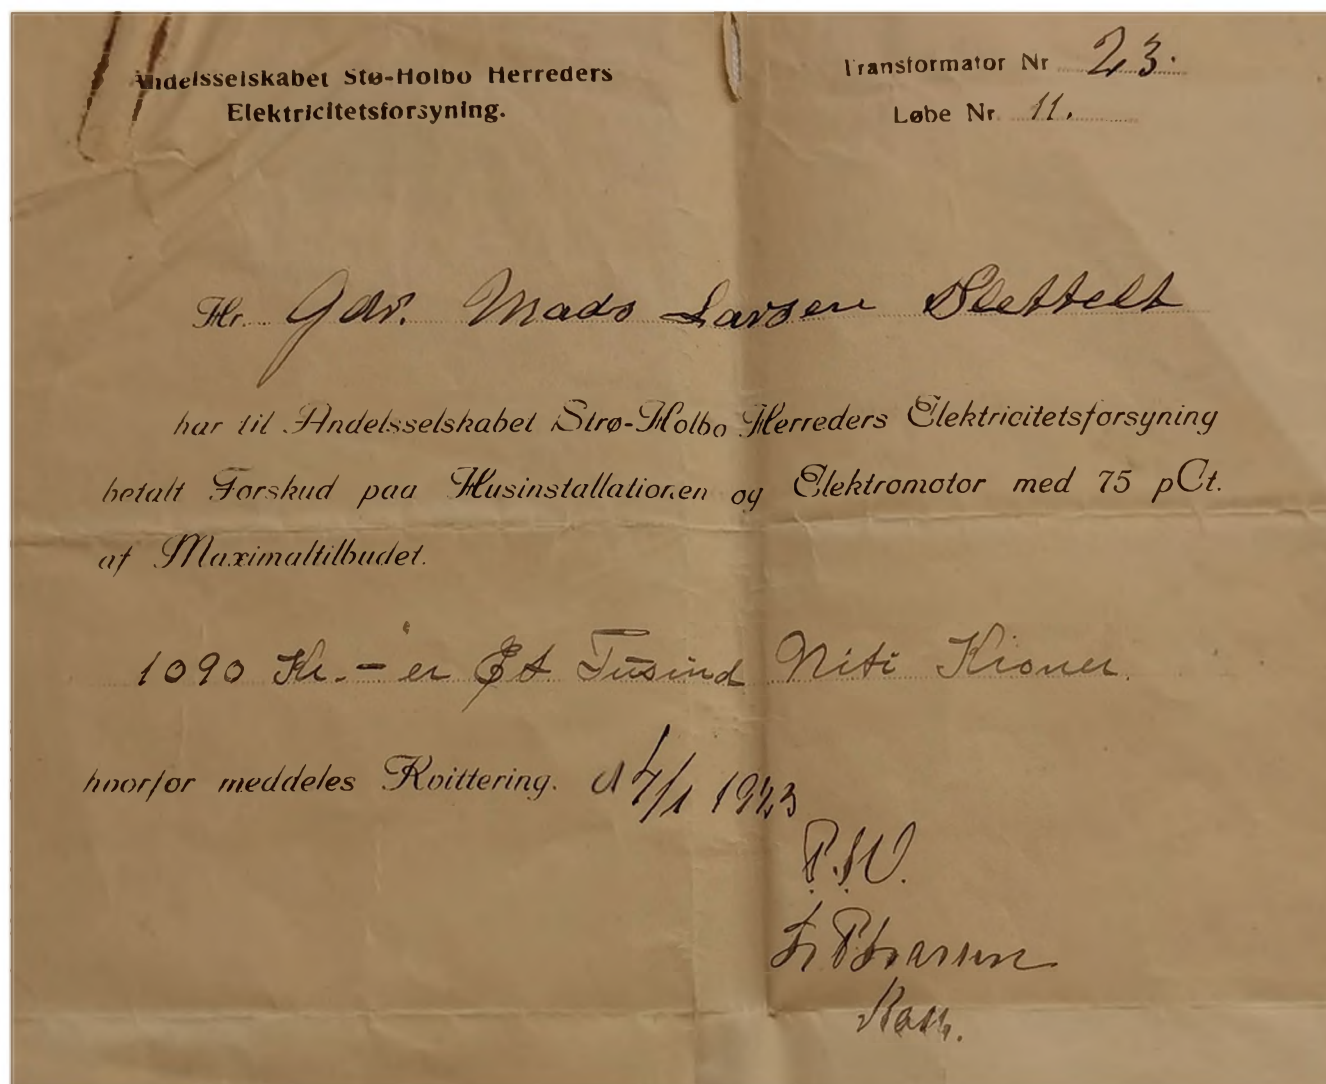 Andelsselskabet Stø-Holbo Herreders
Elektricitetsforsyning.
Transformator Nr 23.
Løbe Nr. 11.
Hr. Gdr. Mads Larsen Slettelt
har til Andelsselskabet Strø-Holbo Herreders Elektricitetsforsyning
betalt Forskud paa Husinstallationen og Elektromotor med 75 pCt.
af Maximaltilbudet.
1090 Kr. - er Et Tusind Niti Kroner.
hvorfor meddeles Kvittering. d 4/1 1923
Kass.